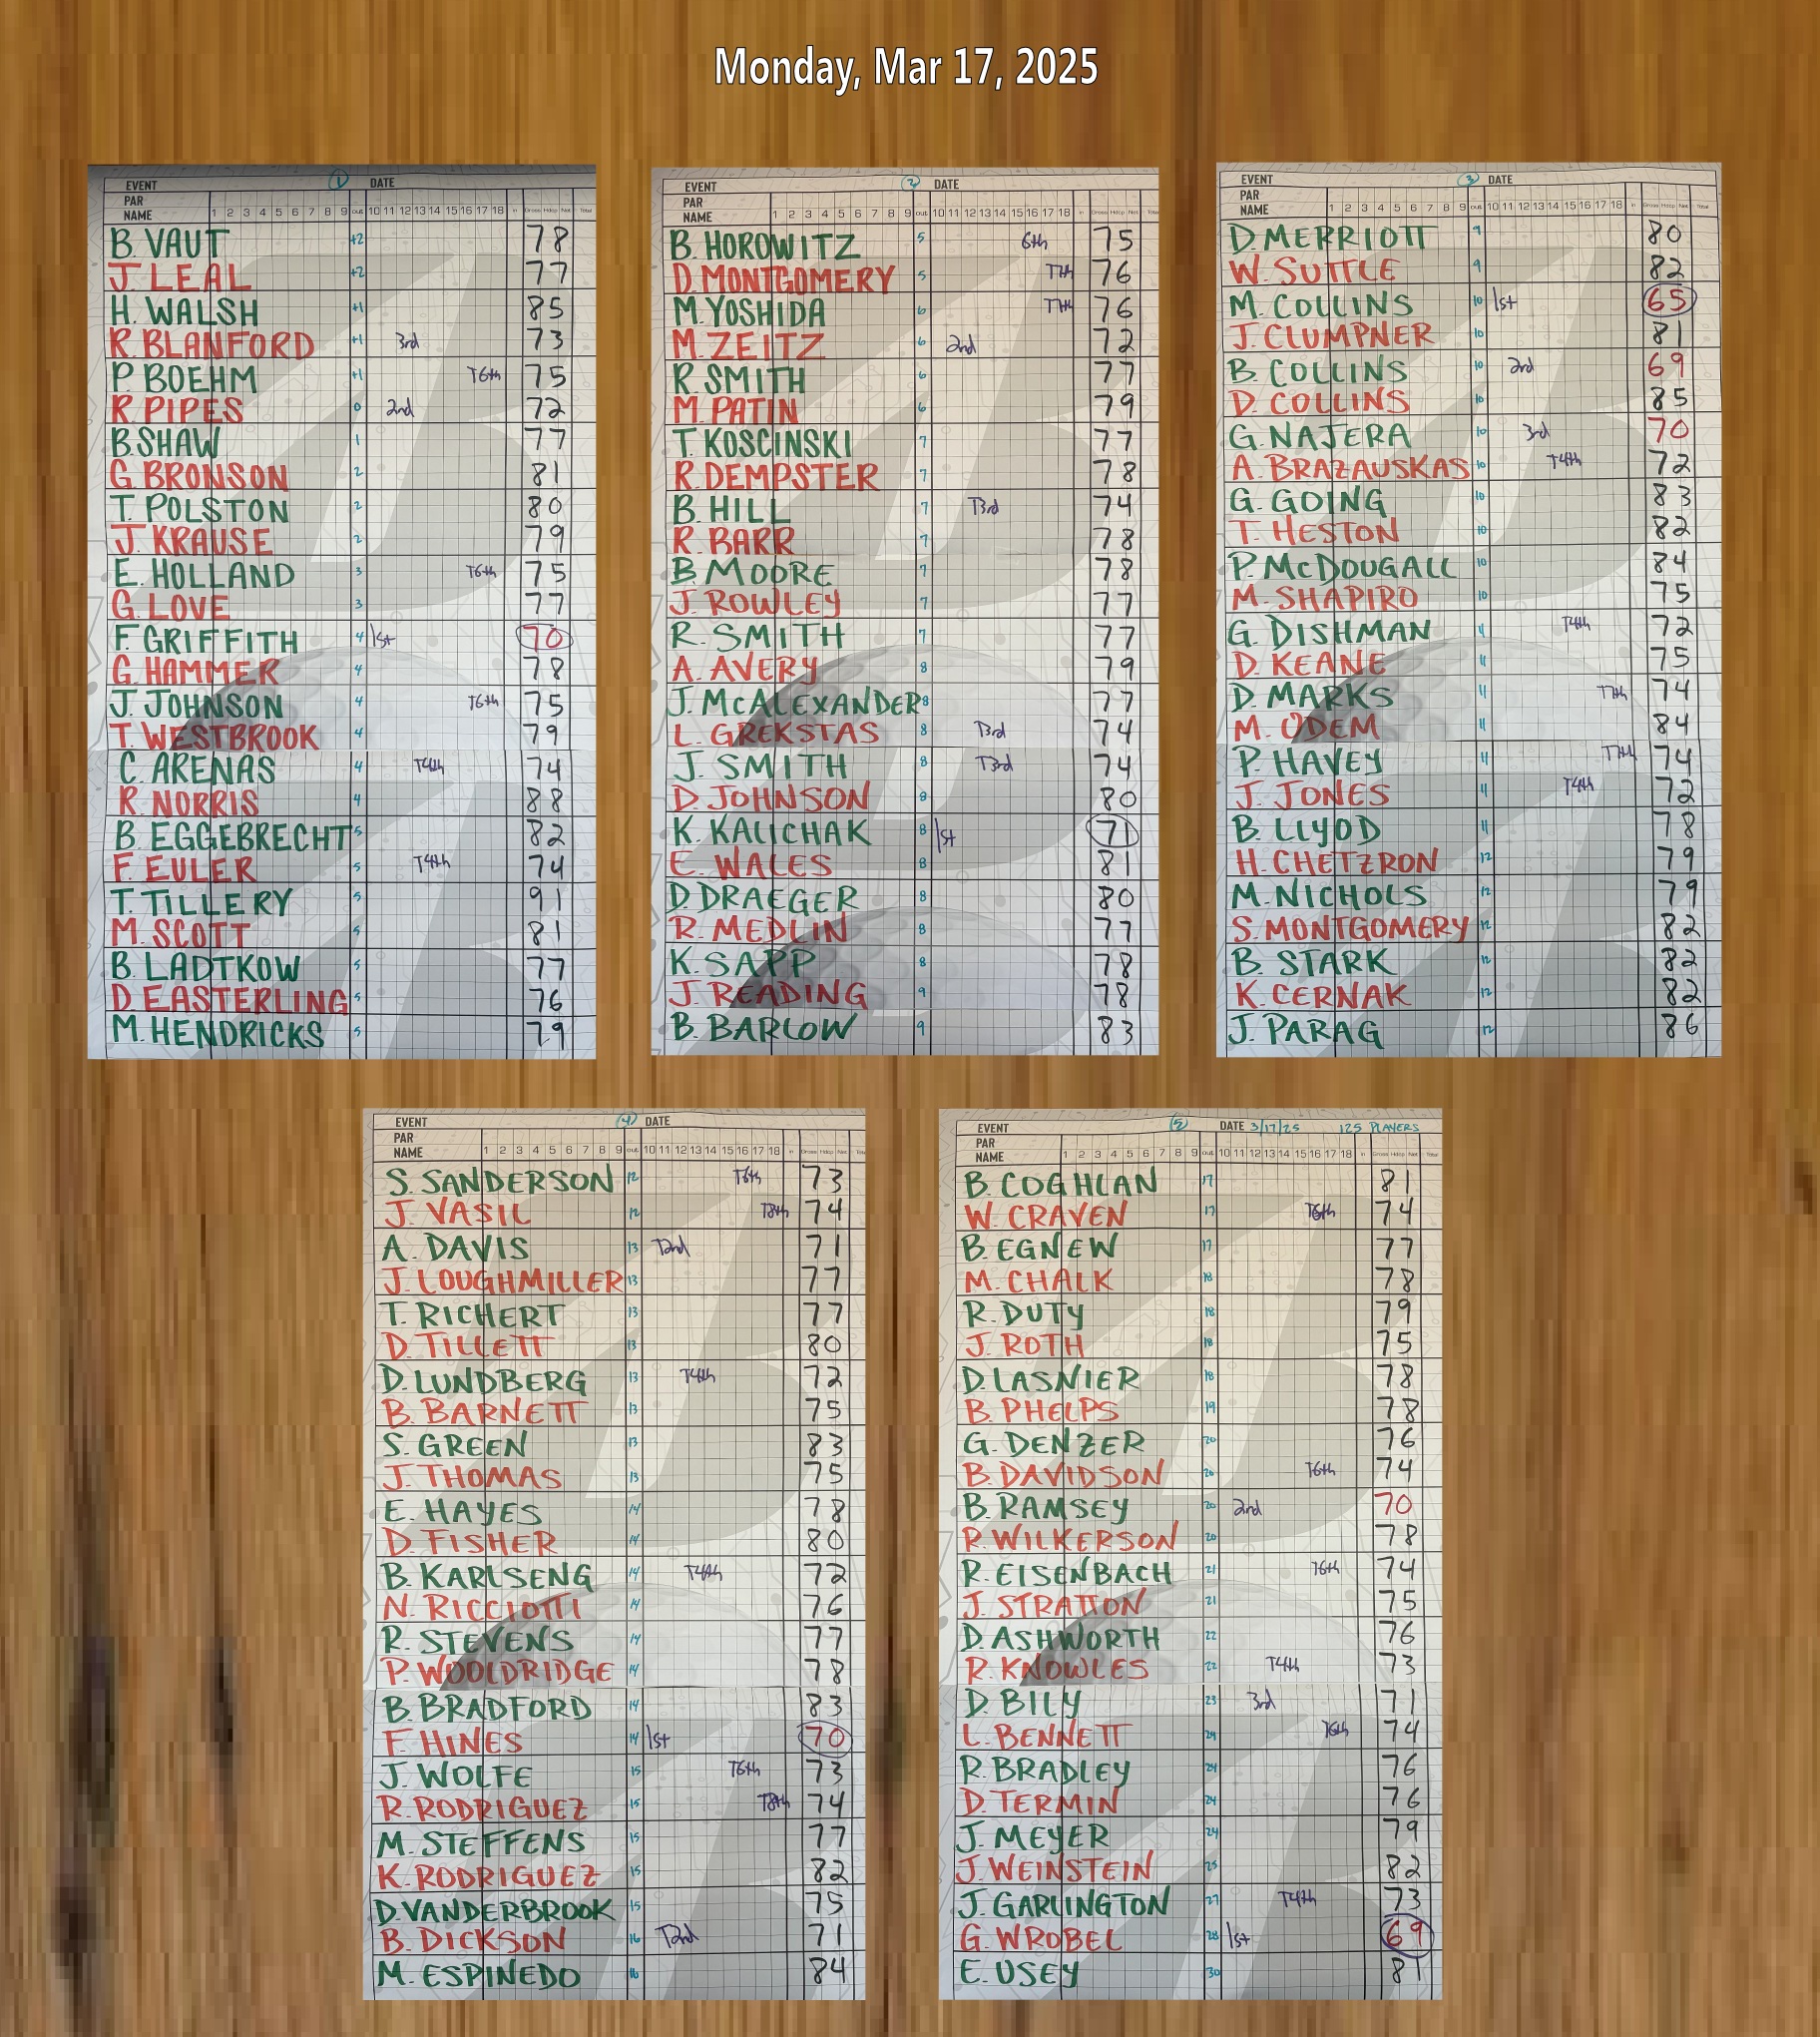 Monday, Mar 17, 2025
EVENT 1 DATE
PAR
NAME 1 2 3 4 5 6 7 8 9 out 10 11 12 13 14 15 16 17 18 in Gross Hdcp Net Total
B. VAUT +2 78
J. LEAL +2 77
H. WALSH +1 85
R. BLANFORD +1 3rd 73
P. BOEHM +1 T6th 75
R. PIPES 0 2nd 72
B. SHAW 1 77
G. BRONSON 2 81
T. POLSTON 2 80
J. KRAUSE 2 79
E. HOLLAND 3 T6th 75
G. LOVE 3 77
F. GRIFFITH 4 1st 70
G. HAMMER 4 78
J. JOHNSON 4 T6th 75
T. WESTBROOK 4 79
C. ARENAS 4 T4th 74
R. NORRIS 4 88
B. EGGEBRECHT 5 82
F. EULER 5 T4th 74
T. TILLERY 5 91
M. SCOTT 5 81
B. LADTKOW 5 77
D. EASTERLING 5 76
M. HENDRICKS 5 79
EVENT 2 DATE
PAR
NAME 1 2 3 4 5 6 7 8 9 out 10 11 12 13 14 15 16 17 18 in Gross Hdcp Net Total
B. HOROWITZ 5 6th 75
D. MONTGOMERY 5 T7th 76
M. YOSHIDA 6 T7th 76
M. ZEITZ 6 2nd 72
R. SMITH 6 77
M. PATIN 6 79
T. KOSCINSKI 7 77
R. DEMPSTER 7 78
B. HILL 7 T3rd 74
R. BARR 7 78
B. MOORE 7 78
J. ROWLEY 7 77
R. SMITH 7 77
A. AVERY 8 79
J. McALEXANDER 8 77
L. GREKSTAS 8 T3rd 74
J. SMITH 8 T3rd 74
D. JOHNSON 8 80
K. KALICHAK 8 1st 71
E. WALES 8 81
D. DRAEGER 8 80
R. MEDLIN 8 77
K. SAPP 8 78
J. READING 9 78
B. BARLOW 9 83
EVENT 3 DATE
PAR
NAME 1 2 3 4 5 6 7 8 9 out 10 11 12 13 14 15 16 17 18 in Gross Hdcp Net Total
D. MERRIOTT 9 80
W. SUTTLE 9 82
M. COLLINS 10 1st 65
J. CLUMPNER 10 81
B. COLLINS 10 2nd 69
D. COLLINS 10 85
G. NAJERA 10 3rd 70
A. BRAZAUSKAS 10 T4th 72
G. GOING 10 83
T. HESTON 10 82
P. McDOUGALL 10 84
M. SHAPIRO 10 75
G. DISHMAN 11 T4th 72
D. KEANE 11 75
D. MARKS 11 T7th 74
M. ODEM 11 84
P. HAVEY 11 T7th 74
J. JONES 11 T4th 72
B. LLYOD 11 78
H. CHETZRON 12 79
M. NICHOLS 12 79
S. MONTGOMERY 12 82
B. STARK 12 82
K. CERNAK 12 82
J. PARAG 12 86
EVENT 4 DATE
PAR
NAME 1 2 3 4 5 6 7 8 9 out 10 11 12 13 14 15 16 17 18 in Gross Hdcp Net Total
S. SANDERSON 12 T6th 73
J. VASIL 12 T8th 74
A. DAVIS 13 T2nd 71
J. LOUGHMILLER 13 77
T. RICHERT 13 77
D. TILLETT 13 80
D. LUNDBERG 13 T4th 72
B. BARNETT 13 75
S. GREEN 13 83
J. THOMAS 13 75
E. HAYES 14 78
D. FISHER 14 80
B. KARLSENG 14 T4th 72
N. RICCIOTTI 14 76
R. STEVENS 14 77
P. WOOLDRIDGE 14 78
B. BRADFORD 14 83
F. HINES 14 1st 70
J. WOLFE 15 T6th 73
R. RODRIGUEZ 15 T8th 74
M. STEFFENS 15 77
K. RODRIGUEZ 15 82
D. VANDERBROOK 15 75
B. DICKSON 16 T2nd 71
M. ESPINEDO 16 84
EVENT 5 DATE 3/17/25 125 PLAYERS
PAR
NAME 1 2 3 4 5 6 7 8 9 out 10 11 12 13 14 15 16 17 18 in Gross Hdcp Net Total
B. COGHLAN 17 81
W. CRAVEN 17 T6th 74
B. EGNEW 17 77
M. CHALK 18 78
R. DUTY 18 79
J. ROTH 18 75
D. LASNIER 18 78
B. PHELPS 19 78
G. DENZER 20 76
B. DAVIDSON 20 T6th 74
B. RAMSEY 20 2nd 70
R. WILKERSON 20 78
R. EISENBACH 21 T6th 74
J. STRATTON 21 75
D. ASHWORTH 22 76
R. KNOWLES 22 T4th 73
D. BILY 23 3rd 71
L. BENNETT 24 T6th 74
R. BRADLEY 24 76
D. TERMIN 24 76
J. MEYER 24 79
J. WEINSTEIN 25 82
J. GARLINGTON 27 T4th 73
G. WROBEL 28 1st 69
E. USEY 30 81